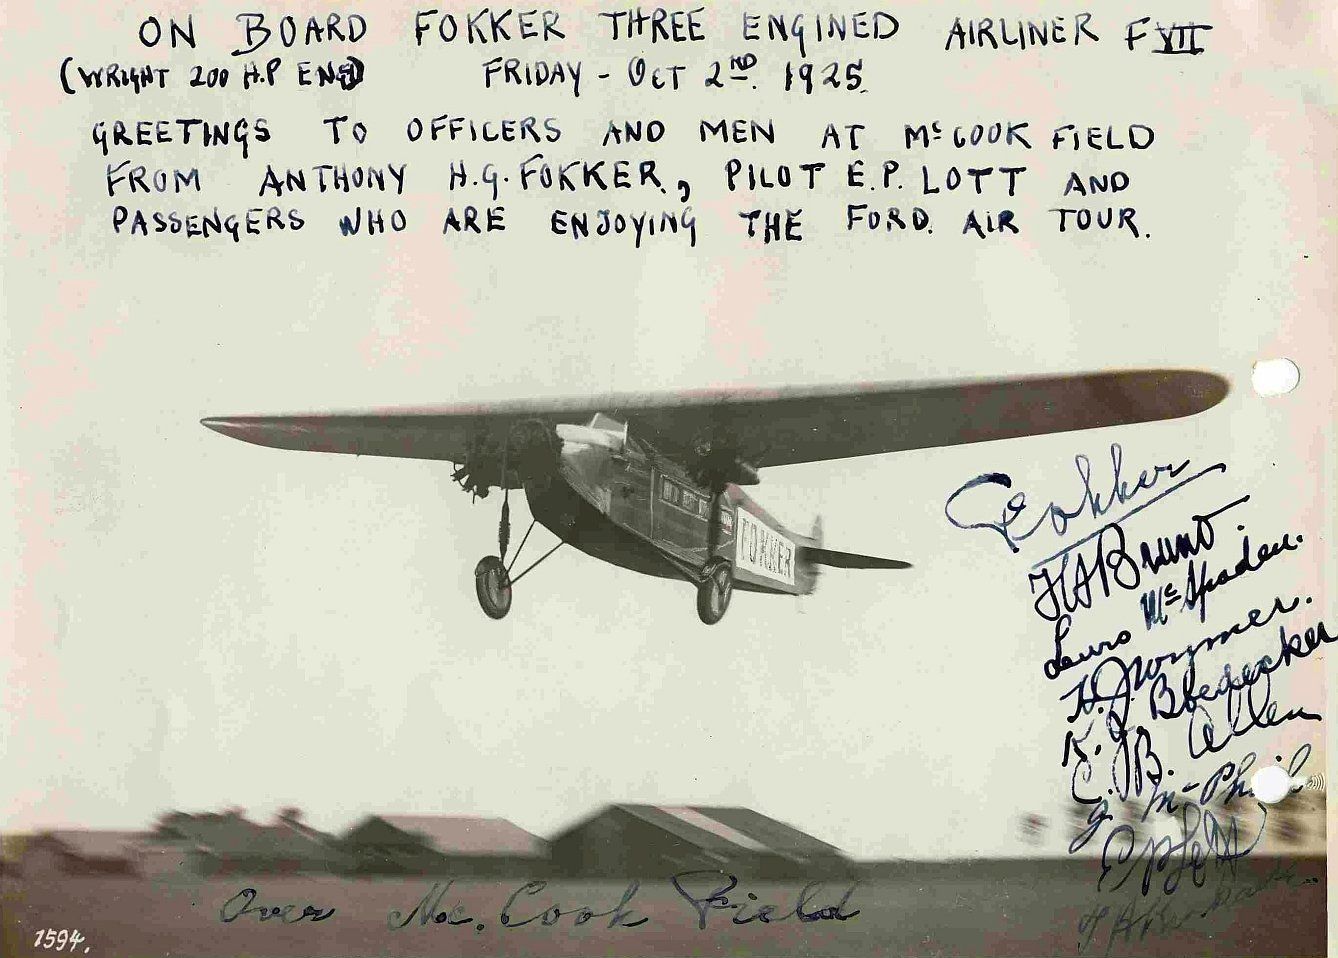 ON BOARD FOKKER THREE ENGINED AIRLINER F VII
(WRIGHT 200 H.P ENG) FRIDAY - OCT 2ND. 1925.
GREETINGS TO OFFICERS AND MEN AT McCOOK FIELD
FROM ANTHONY H.G. FOKKER, PILOT E.P. LOTT AND
PASSENGERS WHO ARE ENJOYING THE FORD. AIR TOUR.
FOKKER
Fokker
H A Bruno
McSpaden.
C. B. Allen
G. McPhail
E P Lott
Over Mc. Cook Field
1594.